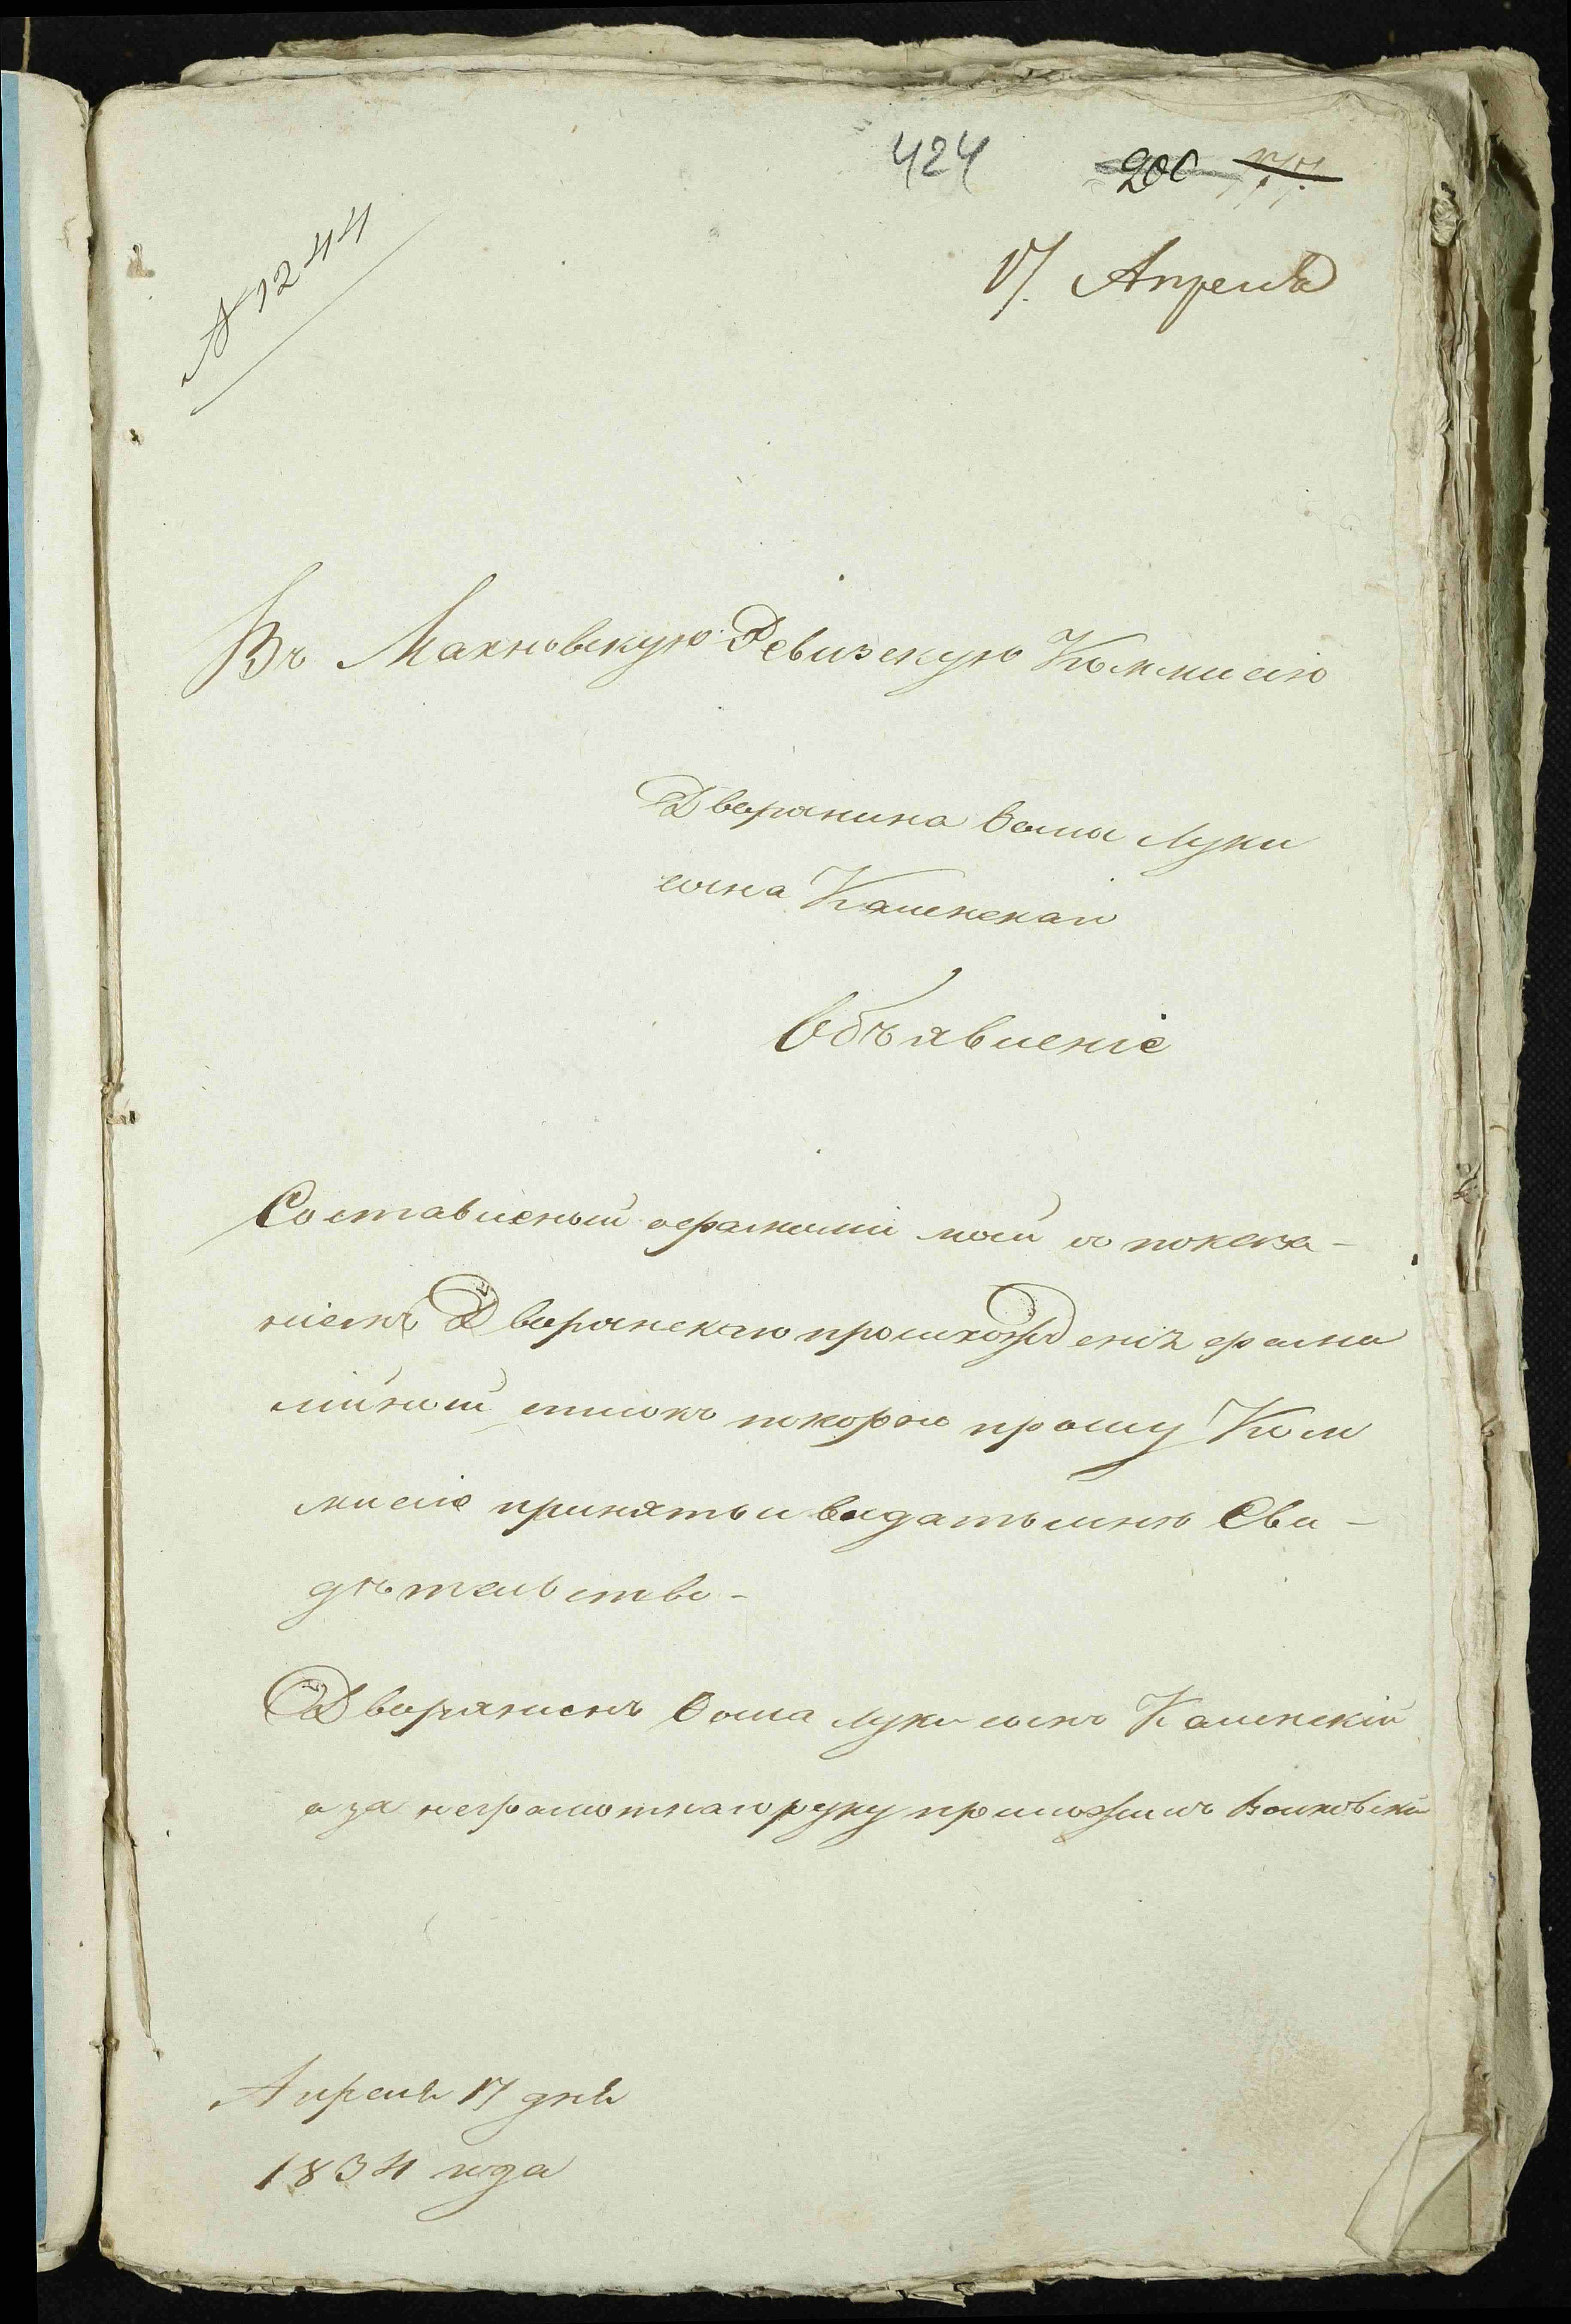 424 200 177
17. Апреля
№ 1244
Въ Махновскую Ревизскую Коммисію
Дворянина Ѳомы Луки
сына Каменскаго
Объявленіе
Составленый о фамиліи моей съ показа-
ніемъ Дворянскаго происхожденія фами
лійный списокъ покорно прошу Ком
мисію принять и выдать мнѣ Сви-
дѣтельство-
Дворянинъ Ѳома Луки сынъ Каменскій
а за неграмотнаго руку приложилъ
Апреля 17 дня
1834 года